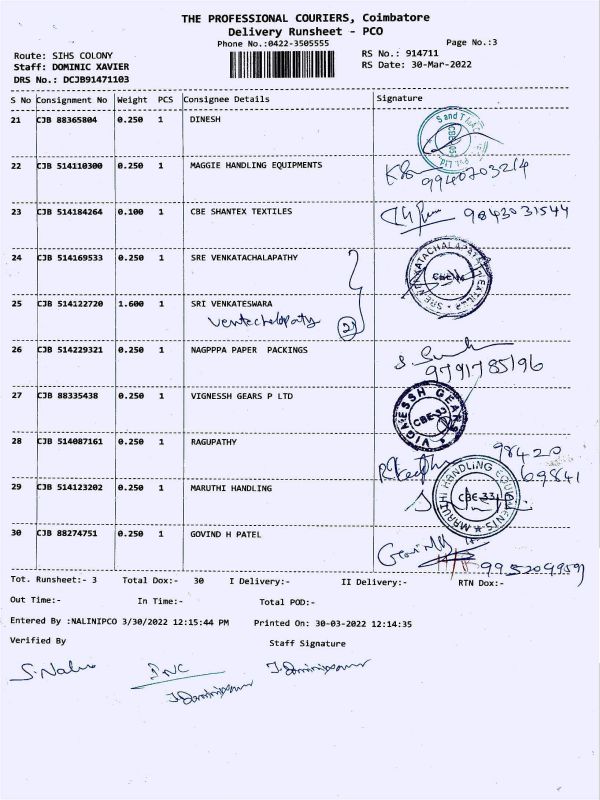 THE PROFESSIONAL COURIERS, Coimbatore
Delivery Runsheet - PCO
Phone No.:0422-3505555
Page No.:3
Route: SIHS COLONY
RS No.: 914711
Staff: DOMINIC XAVIER
RS Date: 30-Mar-2022
DRS No.: DCJB91471103
S No Consignment No Weight PCS Consignee Details Signature
21 CJB 88365804 0.250 1 DINESH
22 CJB 514110300 0.250 1 MAGGIE HANDLING EQUIPMENTS
23 CJB 514184264 0.100 1 CBE SHANTEX TEXTILES 9843031544
24 CJB 514169533 0.250 1 SRE VENKATACHALAPATHY
25 CJB 514122720 1.600 1 SRI VENKATESWARA
26 CJB 514229321 0.250 1 NAGPPPA PAPER PACKINGS
9791785196
27 CJB 88335438 0.250 1 VIGNESSH GEARS P LTD
VIGNESSH GEARS
CBE-33
28 CJB 514087161 0.250 1 RAGUPATHY
98420
69841
29 CJB 514123202 0.250 1 MARUTHI HANDLING
MARUTHI HANDLING EQUIPMENTS
CBE-33
30 CJB 88274751 0.250 1 GOVIND H PATEL
Tot. Runsheet:- 3 Total Dox:- 30 I Delivery:- II Delivery:- RTN Dox:-
Out Time:- In Time:- Total POD:-
Entered By :NALINIPCO 3/30/2022 12:15:44 PM Printed On: 30-03-2022 12:14:35
Verified By Staff Signature